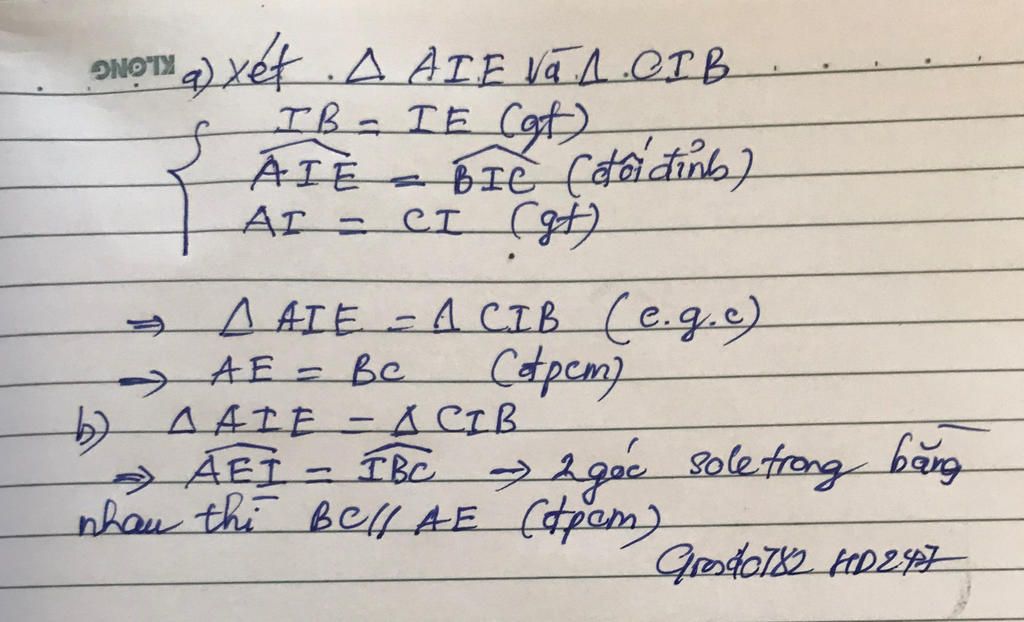 KLONG
a) Xét Δ AIE và Δ CIB
IB = IE (gt)
AIE = BIC (đối đỉnh)
AI = CI (gt)
⇒ Δ AIE = Δ CIB (c.g.c)
→ AE = BC (đpcm)
b) Δ AIE = Δ CIB
⇒ AEI = IBC → 2 góc sole trong bằng
nhau thì BC // AE (đpcm)
HD247